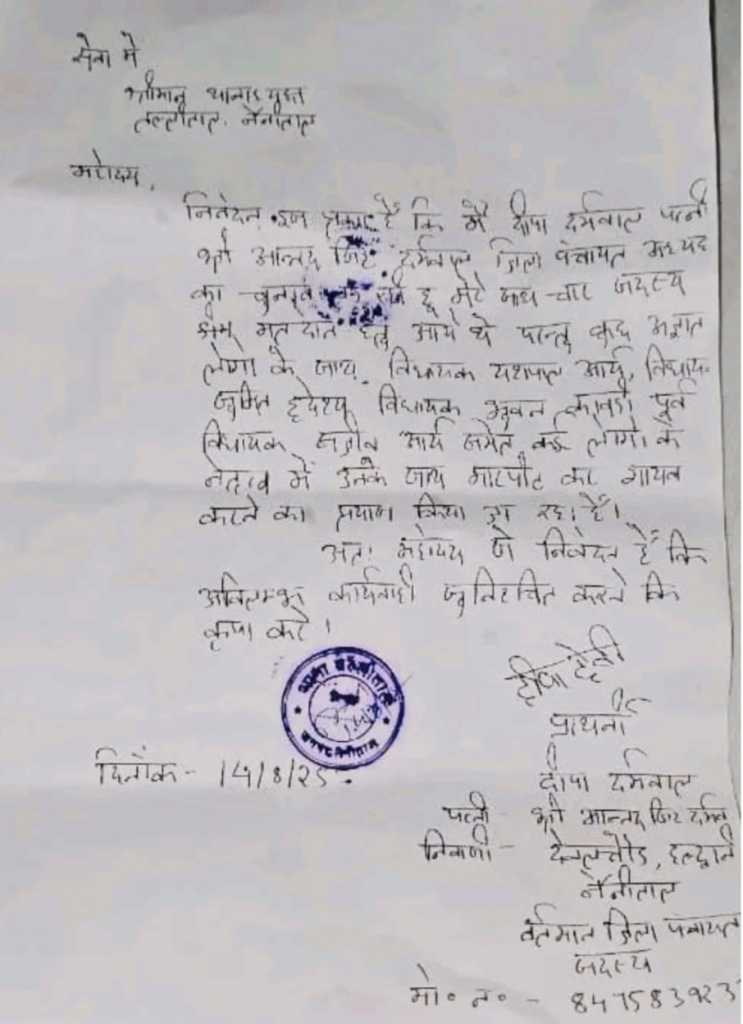 सेवा में
श्रीमान् थानाध्यक्ष
तल्लीताल, नैनीताल
महोदय,
निवेदन इस प्रकार है कि मैं दीपा दर्मवाल पत्नी
श्री आनन्द सिंह दर्मवाल जिला पंचायत अध्यक्ष
का चुनाव लड़ रही हूं मेरे साथ चार सदस्य
मतदान हेतु आये थे परन्तु कुछ अज्ञात
लोगो के साथ विधायक यशपाल आर्य, विधायक
सुमित हृदेश, विधायक भुवन कापड़ी पूर्व
विधायक संजीव आर्य समेत कई लोगो के
नेतृत्व में उनके साथ मारपीट कर गायब
करने का प्रयास किया जा रहा है।
अतः महोदय से निवेदन है कि
अविलम्ब कार्यवाही सुनिश्चित करने कि
कृपा करें।
थाना तल्लीताल
जनपद नैनीताल
दीपा देवी
प्रार्थनी
दिनाँक - 14/8/25
दीपा दर्मवाल
पत्नी - श्री आनन्द सिंह दर्मवाल
निवासी - देवलचौड़, हल्द्वानी
नैनीताल
वर्तमान जिला पंचायत
सदस्य
मो० न० - 847583923